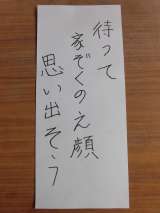 待って
家ぞくのえ顔
思い出そう